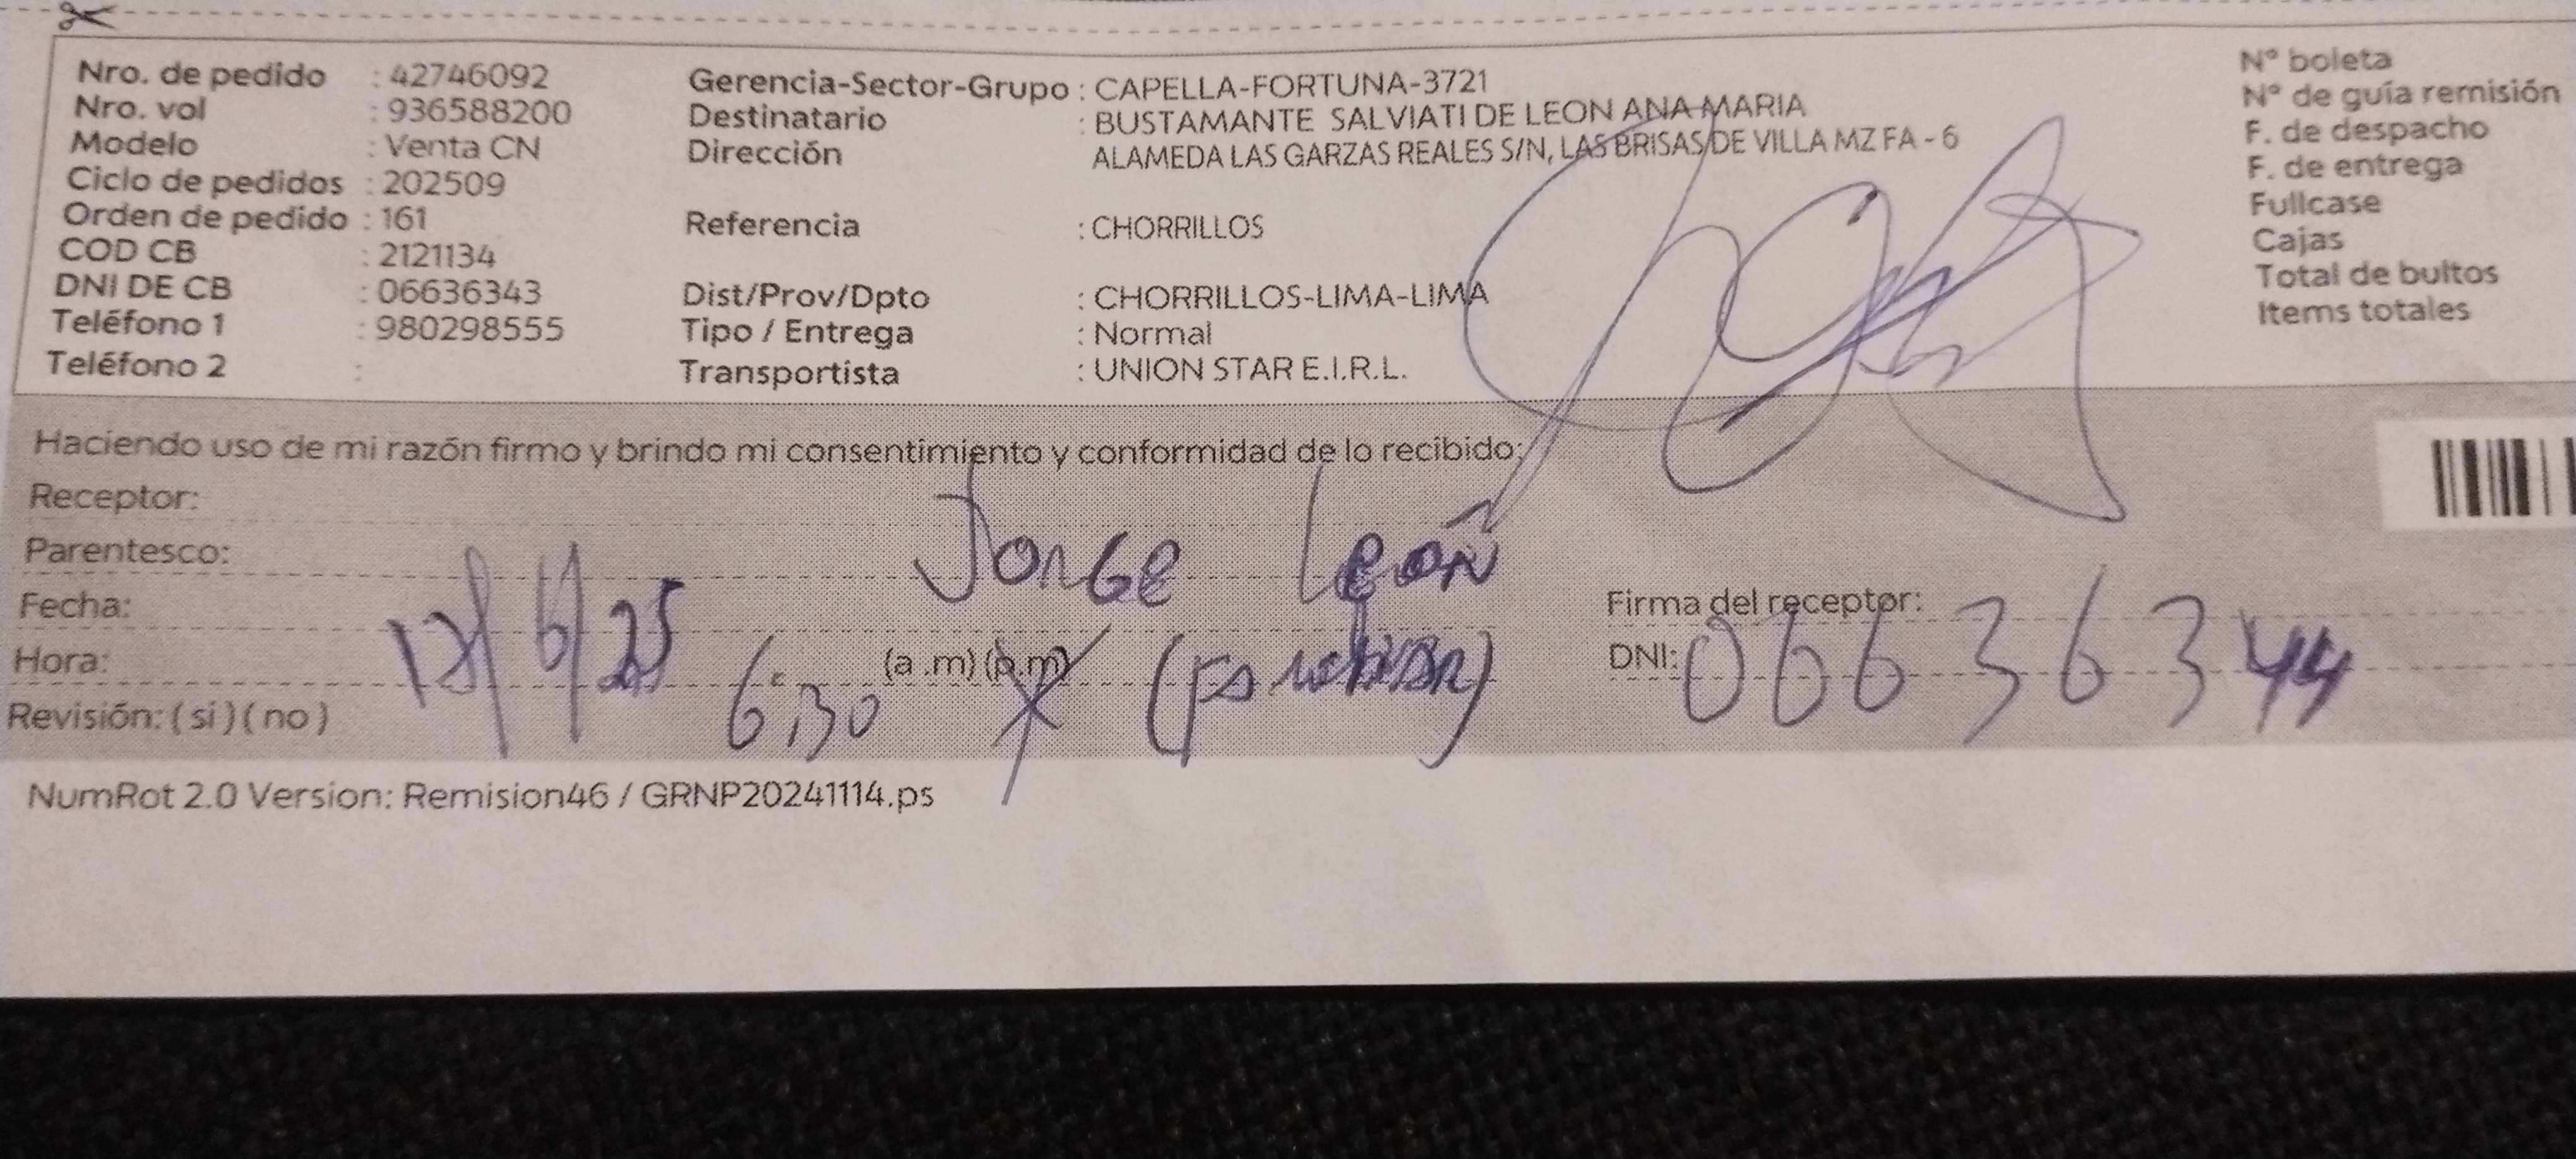 Nro. de pedido : 42746092
Nro. vol : 936588200
Modelo : Venta CN
Ciclo de pedidos : 202509
Orden de pedido : 161
COD CB : 2121134
DNI DE CB : 06636343
Teléfono 1 : 980298555
Teléfono 2 :
Gerencia-Sector-Grupo : CAPELLA-FORTUNA-3721
Destinatario : BUSTAMANTE SALVIATI DE LEON ANA MARIA
Dirección ALAMEDA LAS GARZAS REALES S/N, LAS BRISAS DE VILLA MZ FA - 6
Referencia : CHORRILLOS
Dist/Prov/Dpto : CHORRILLOS-LIMA-LIMA
Tipo / Entrega : Normal
Transportista : UNION STAR E.I.R.L.
N° boleta
N° de guía remisión
F. de despacho
F. de entrega
Fullcase
Cajas
Total de bultos
Items totales
Haciendo uso de mi razón firmo y brindo mi consentimiento y conformidad de lo recibido:
Receptor:
Parentesco: Jorge León
Fecha: /6/25
Firma del receptor:
Hora: 6:30 (a .m) (p.m)
DNI: 06636344
Revisión: ( si ) ( no )
NumRot 2.0 Version: Remision46 / GRNP20241114.ps